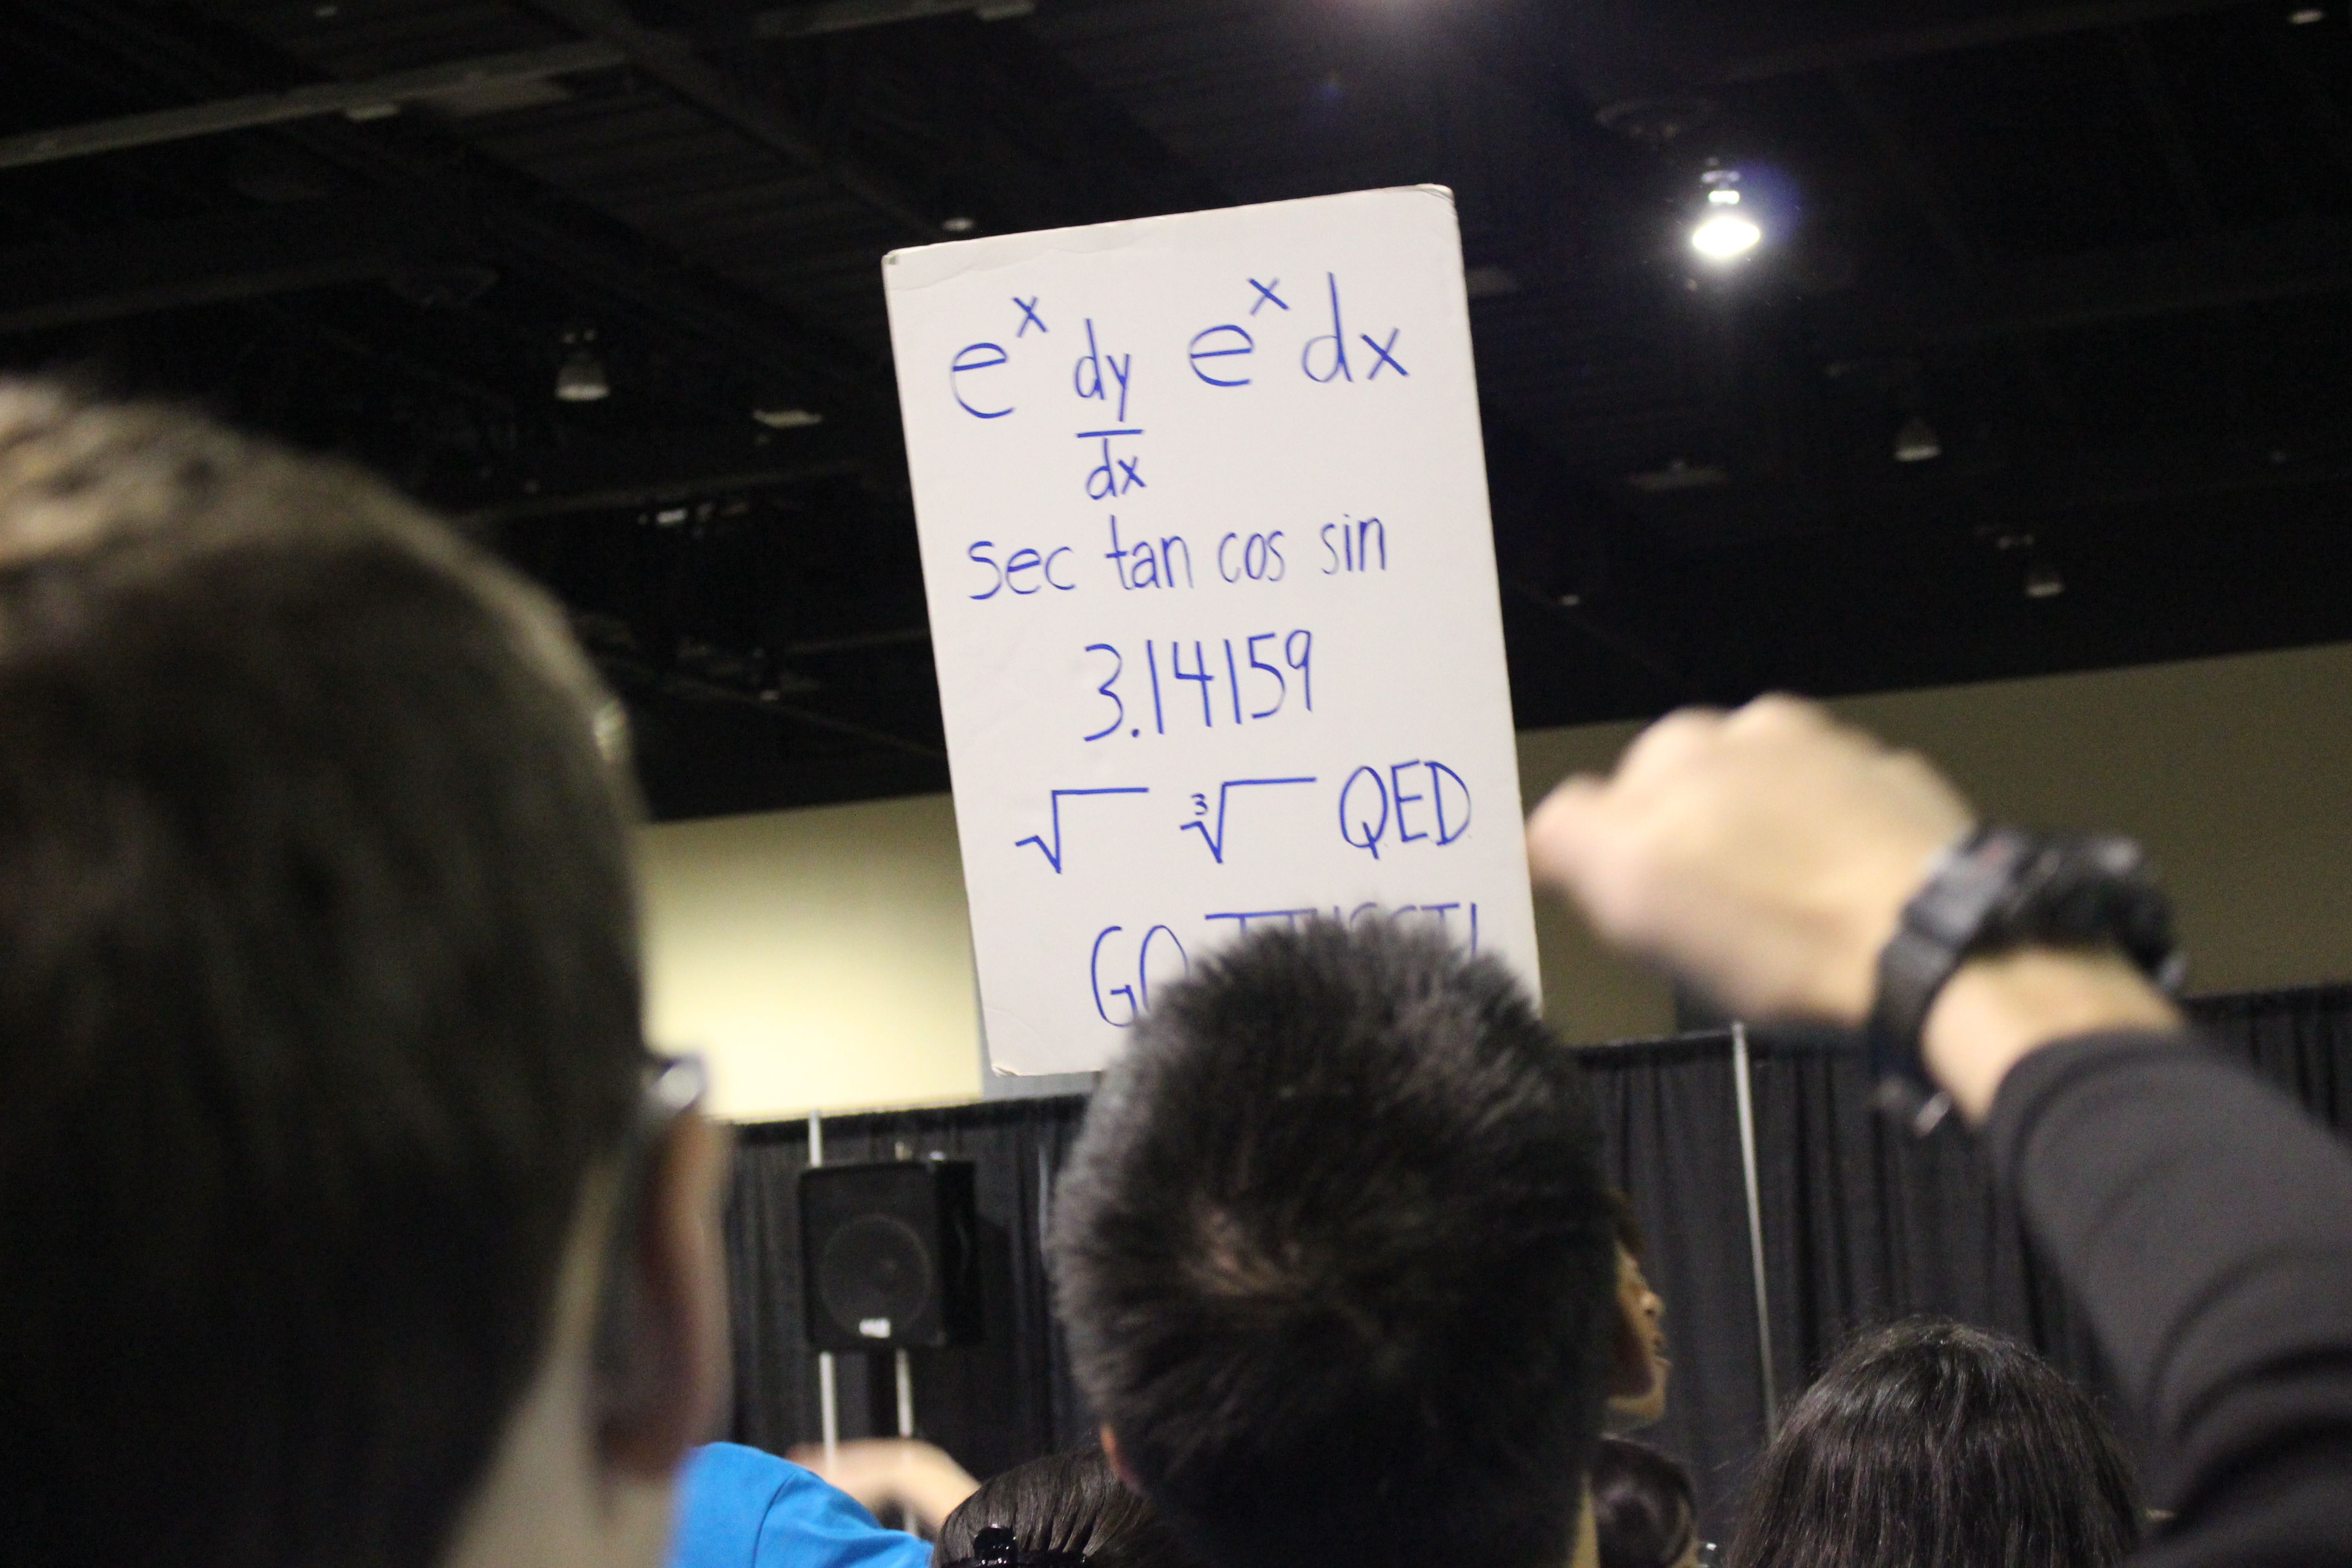 e^x dy/dx e^x dx
sec tan cos sin
3.14159
√ ∛ QED
GO